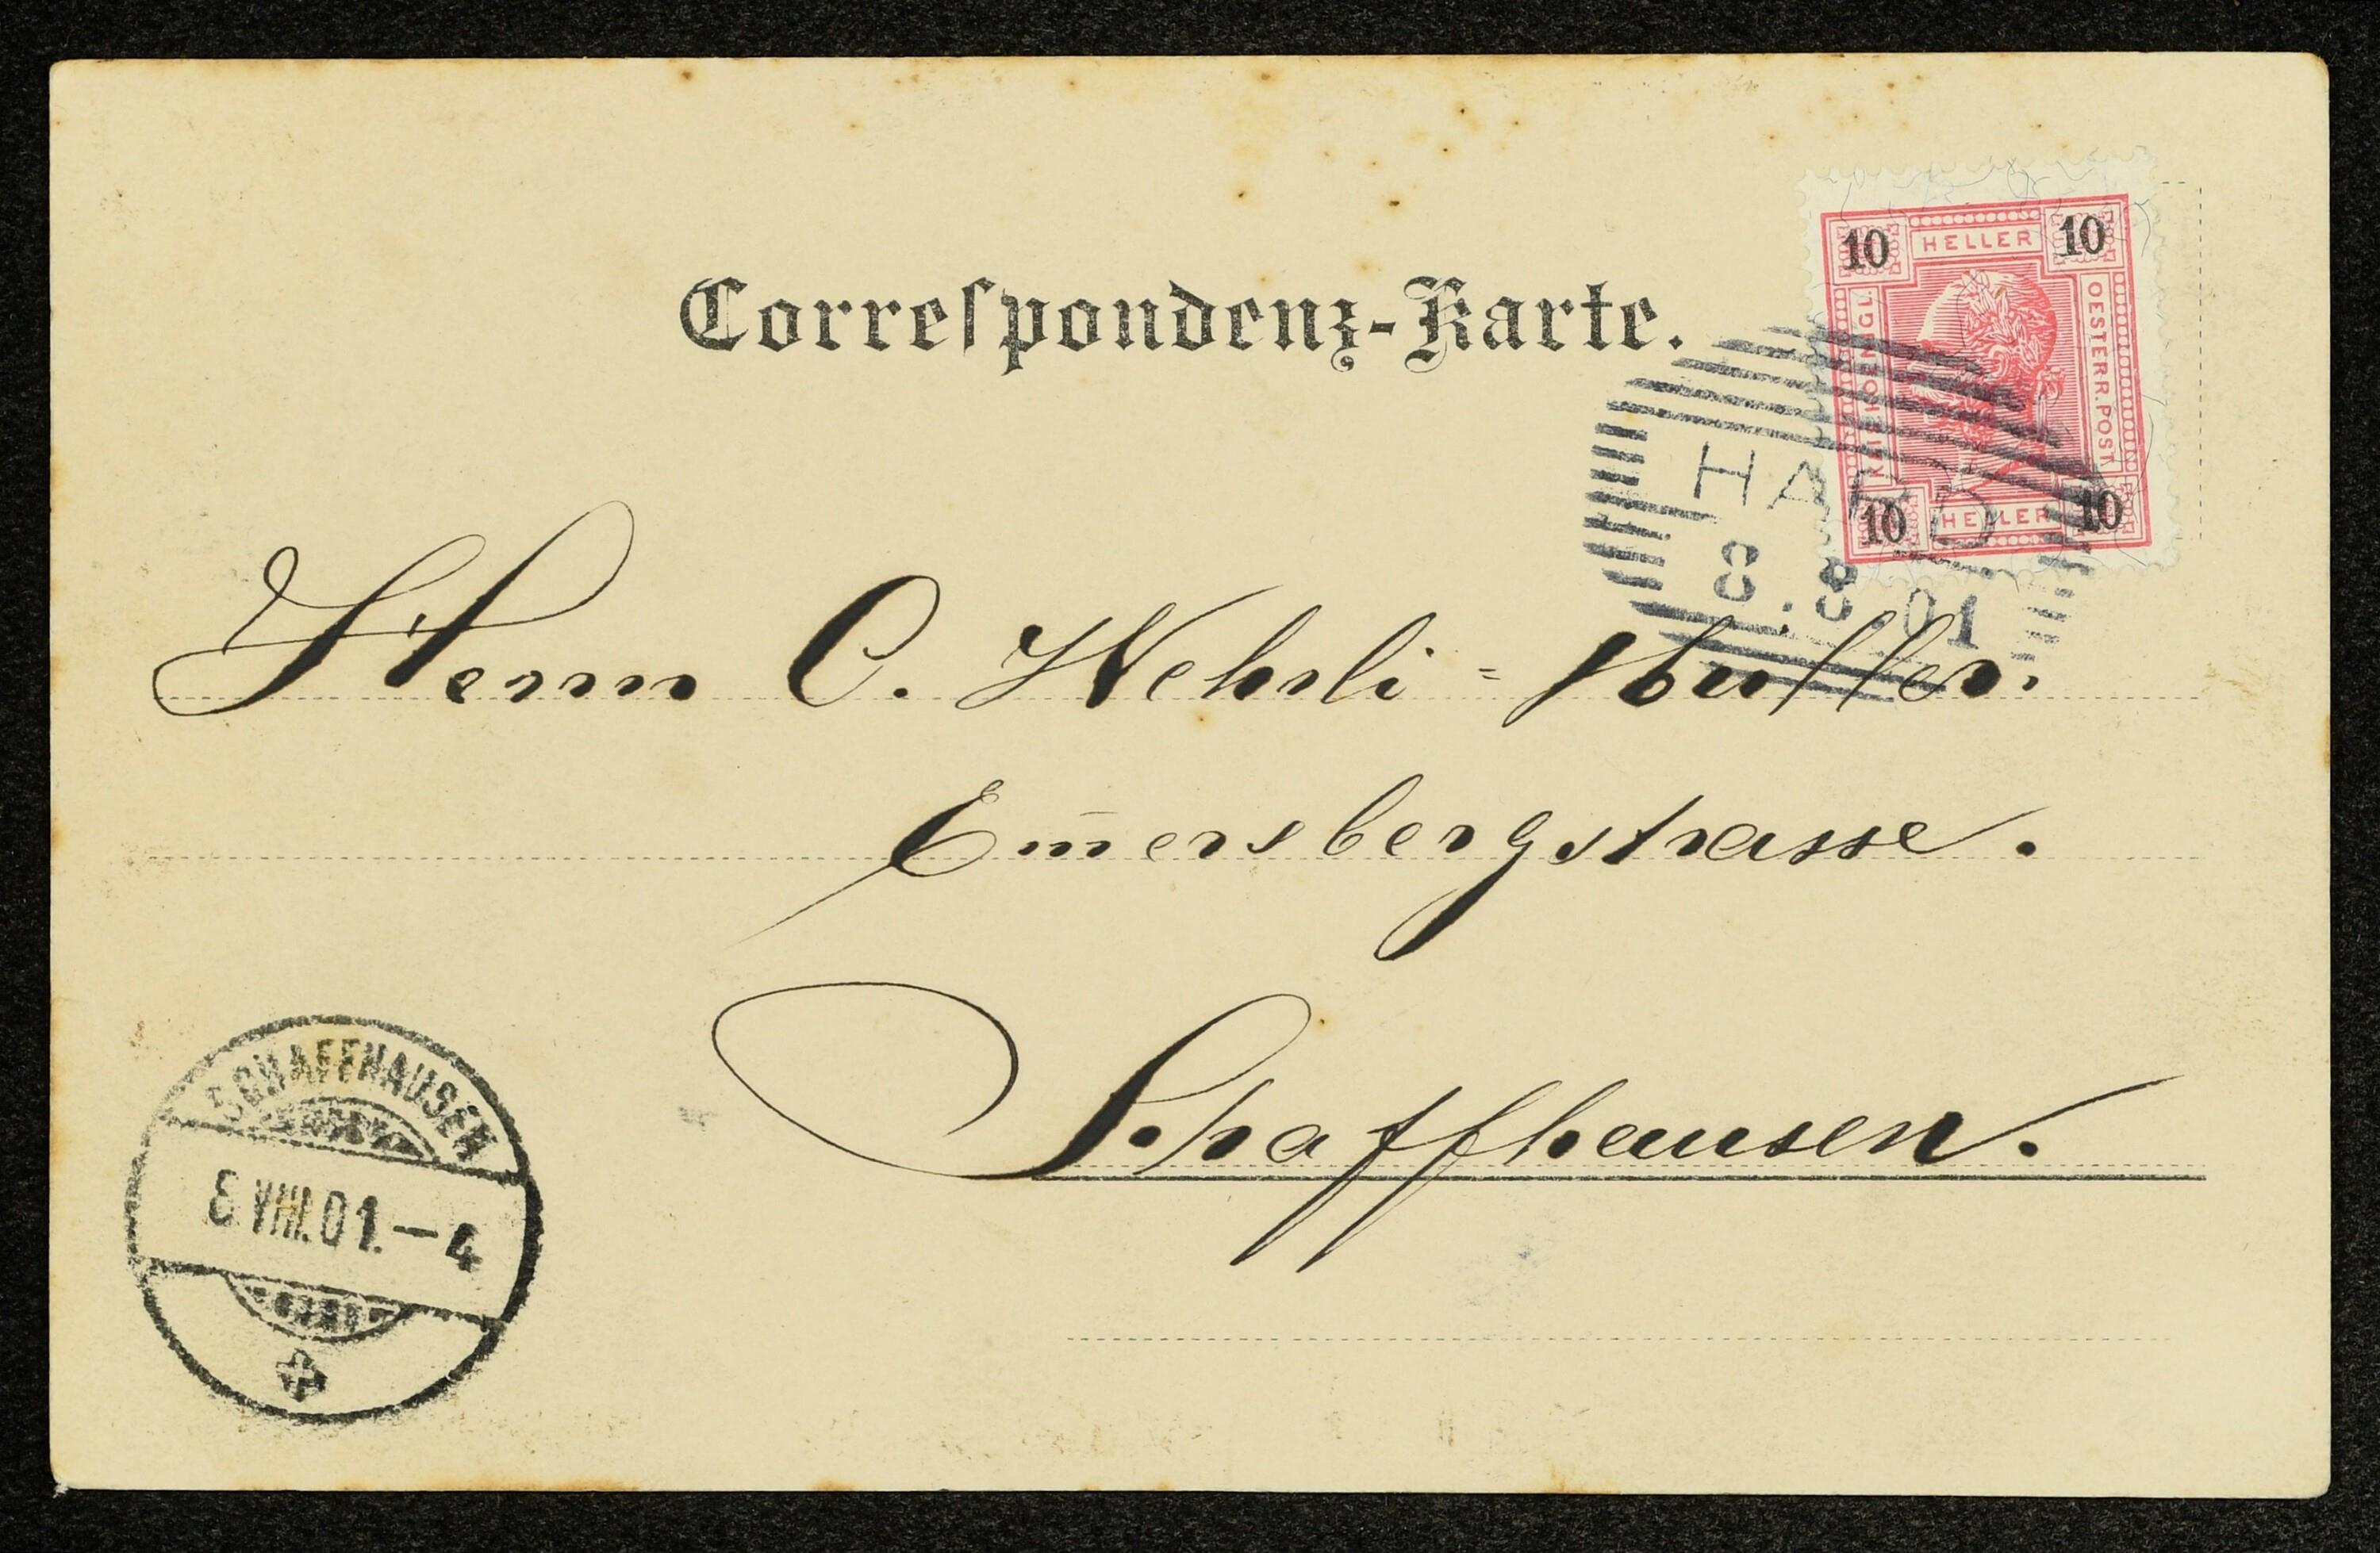 Correspondenz-Karte.
10 HELLER 10
KAISERKOENIGL.
OESTERR. POST
10 HELLER 10
HARD
8.8 01
Herrn C. Wehrli =
Em̅ersbergstrasse.
Schaffhausen.
SCHAFFHAUSEN
8.VIII.01.–4